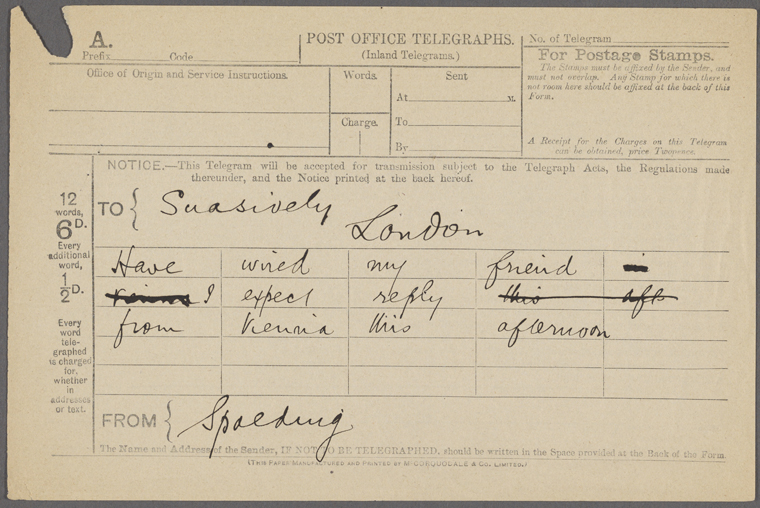 A.
Prefix Code
POST OFFICE TELEGRAPHS.
(Inland Telegrams.)
No. of Telegram
For Postage Stamps.
The Stamps must be affixed by the Sender, and
must not overlap. Any Stamp for which there is
not room here should be affixed at the back of this
Form.
A Receipt for the Charges on this Telegram
can be obtained, price Twopence.
Office of Origin and Service Instructions.
Words.
Charge.
Sent
At M.
To
By
NOTICE.—This Telegram will be accepted for transmission subject to the Telegraph Acts, the Regulations made
thereunder, and the Notice printed at the back hereof.
12
words,
6D.
Every
additional
word,
½D.
Every
word
tele-
graphed
is charged
for,
whether
in
addresses
or text.
TO { Suasively
London
Have wired my friend
I expect reply this aft
from Vienna this afternoon
FROM { Spalding
The Name and Address of the Sender, IF NOT TO BE TELEGRAPHED, should be written in the Space provided at the Back of the Form.
(THIS PAPER MANUFACTURED AND PRINTED BY MCCORQUODALE & CO. LIMITED.)